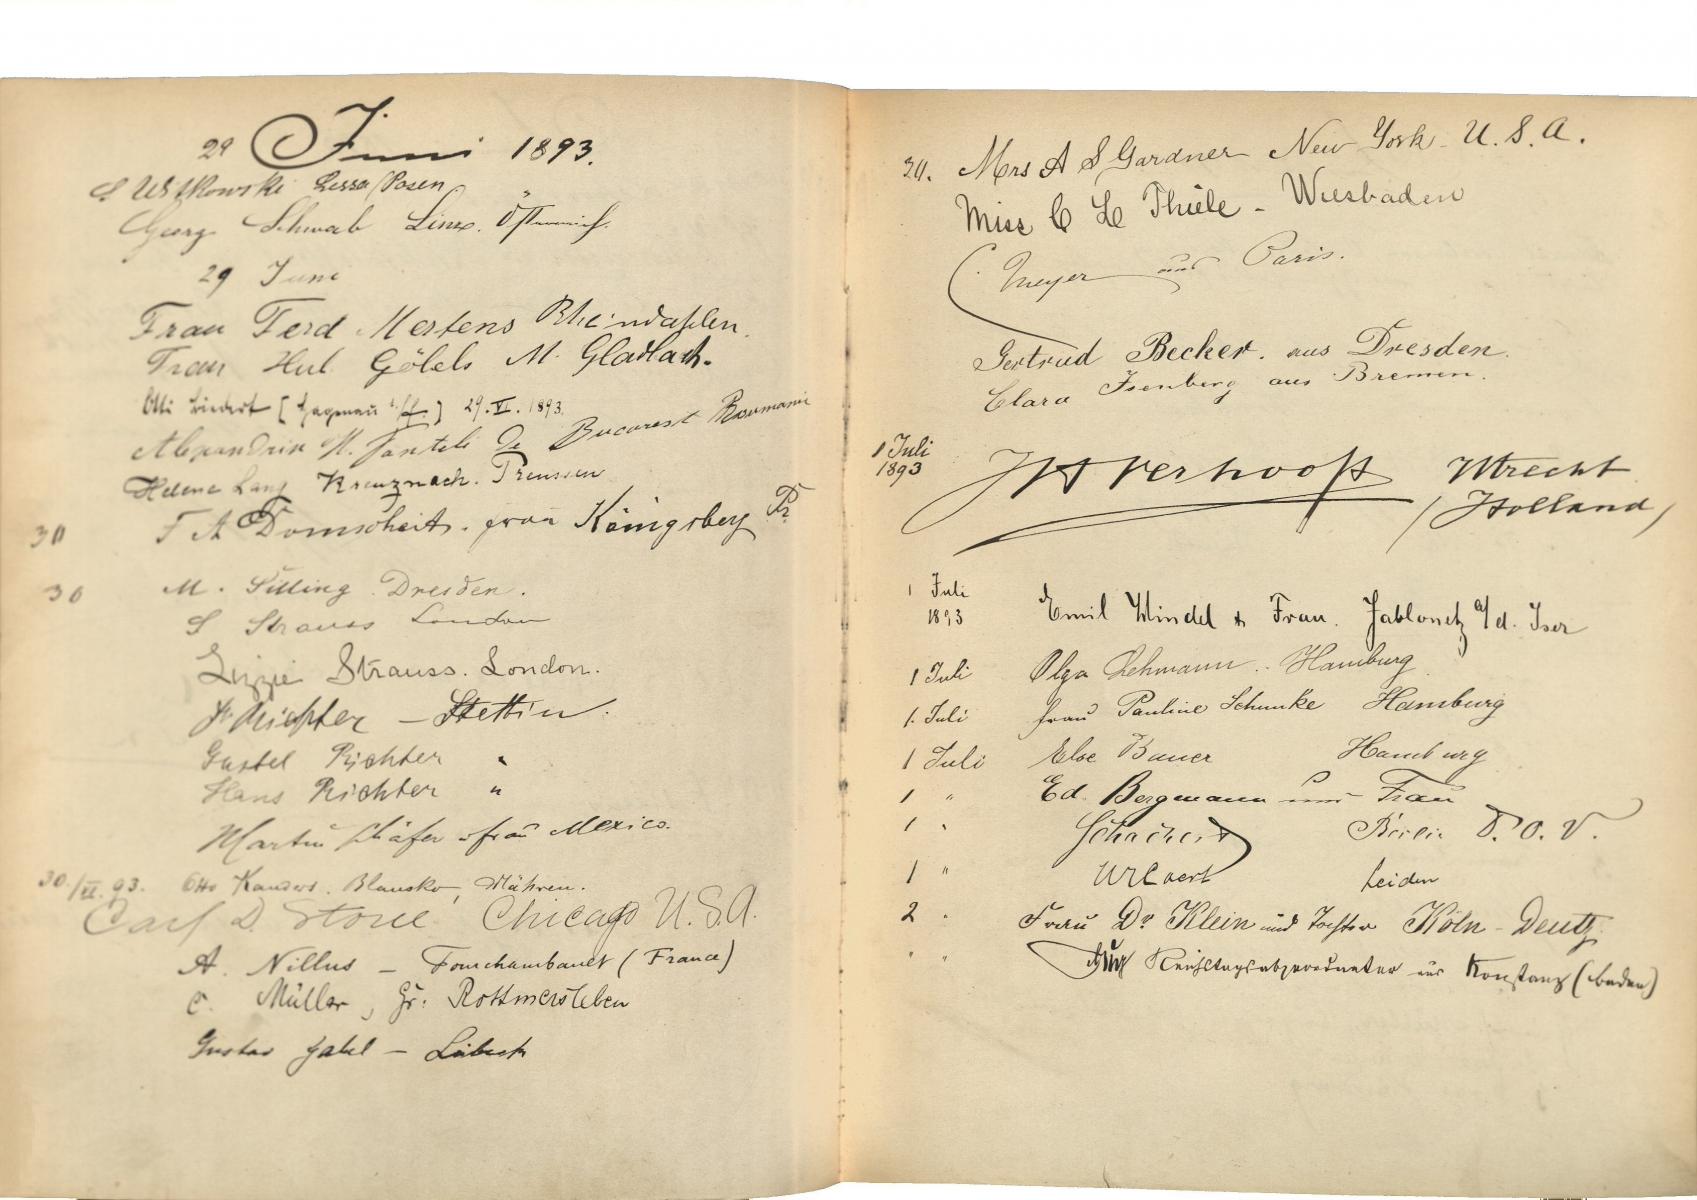 29 Juni 1893.
S Witkowski Lissa/Posen
Georg Schwab Linz. Österreich.
29 Juni
Frau Ferd Mertens Rheindahlen.
Frau Hub Göbels M. Gladbach.
Otto [Hagenau i/E.] 29.VI.1893.
Bucarest Roumanie
Helene Lang Kreuznach. Preussen
30 F A Domscheit. Königsberg Pr.
30 M. Dresden.
S Strauss London
Lizzie Strauss. London.
Richter – Stettin.
Gustel Richter "
Hans Richter "
Martin Schäfer u frau Mexico.
30./VI. 93. Otto Blansko, Mähren.
Carl D. Stone Chicago U.S.A.
A. Nillus – Fourchambault (France)
C. Müller, Gr: Rottmersleben
Gustav – Lübeck
30. Mrs A S Gardner New York U.S.A.
Miss C L Thiele – Wiesbaden
C. Meyer aus Paris.
Gertrud Becker. aus Dresden.
Clara Isenberg aus Bremen.
1 Juli
1893
Verhooff Utrecht
(Holland)
1 Juli
1893
Emil Windel & Frau. Jablonetz a/d. Iser
1 Juli Olga Lehmann. Hamburg
1. Juli Frau Pauline Schunke Hamburg
1 Juli Else Bauer Hamburg
1 " Ed. Bergmann und Frau
1 " Berlin D.O.V.
1 " Leiden
2 " Frau Dr Klein und Tochter Köln – Deutz.
" " Hug Reichstagsabgeordneter aus Konstanz (Baden)